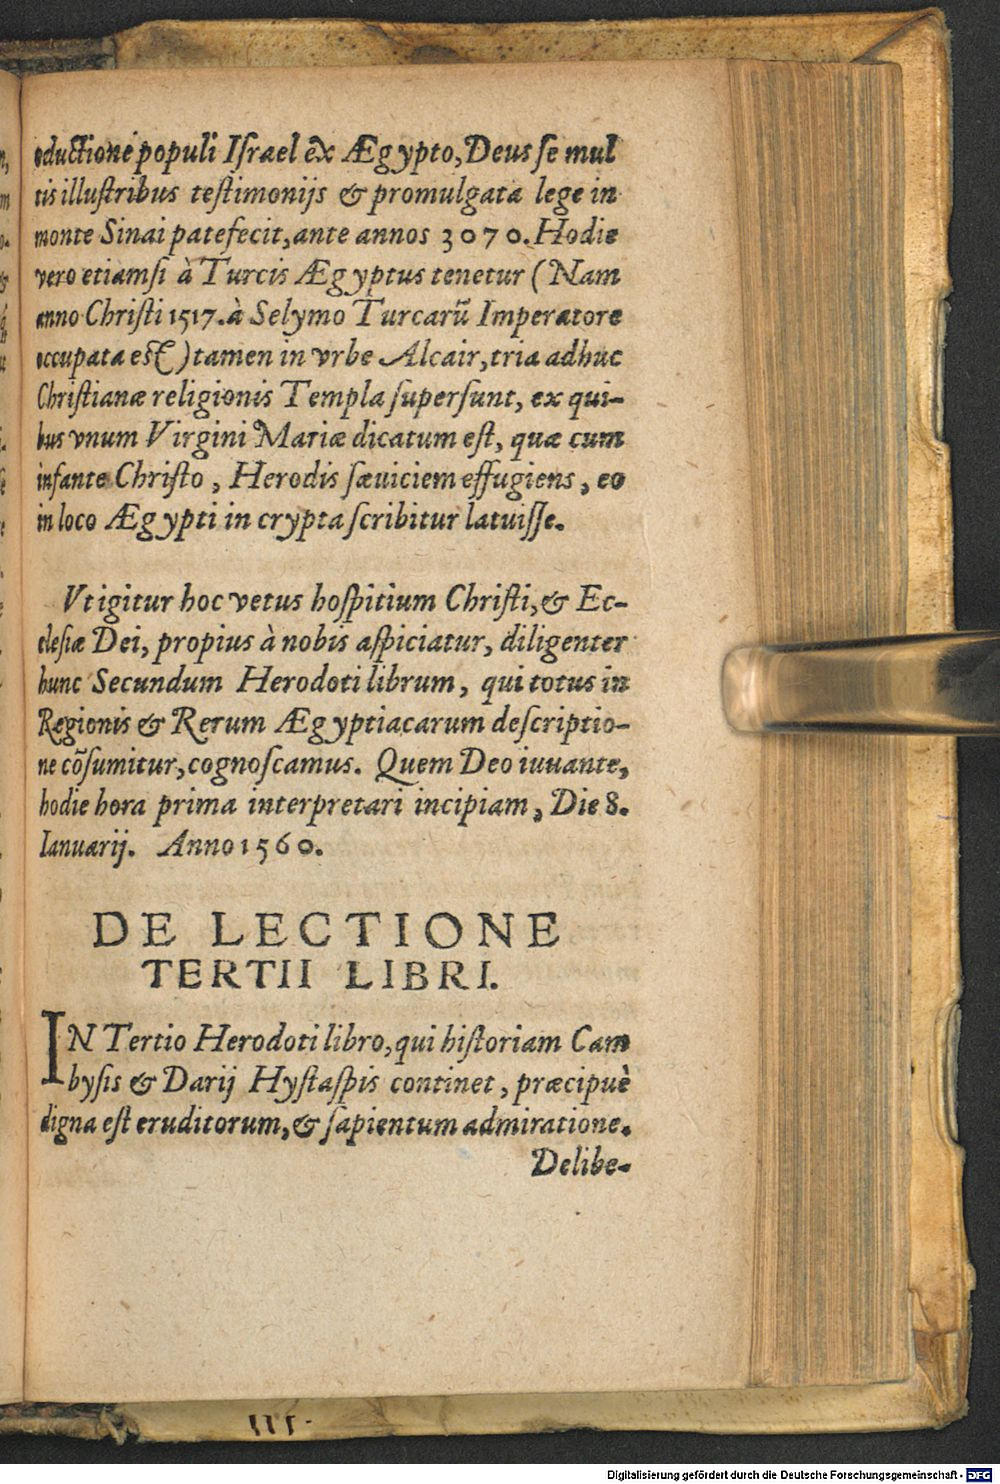 eductione populi Iſrael ex Ægypto, Deus ſe mul
tis illuſtribus teſtimonijs & promulgata lege in
monte Sinai patefecit, ante annos 3070. Hodie
vero etiamſi à Turcis Ægyptus tenetur (Nam
anno Chriſti 1517. à Selymo Turcarũ Imperatore
occupata eſt) tamen in vrbe Alcair, tria adhuc
Chriſtianæ religionis Templa ſuperſunt, ex qui-
bus vnum Virgini Mariæ dicatum eſt, quæ cum
infante Chriſto, Herodis ſæuiciem effugiens, eo
in loco Ægypti in crypta ſcribitur latuiſſe.
Vt igitur hoc vetus hoſpitium Chriſti, & Ec-
cleſiæ Dei, propius à nobis aſpiciatur, diligenter
hunc Secundum Herodoti librum, qui totus in
Regionis & Rerum Ægyptiacarum deſcriptio-
ne cõſumitur, cognoſcamus. Quem Deo iuuante,
hodie hora prima interpretari incipiam, Die 8.
Ianuarij. Anno 1560.
DE LECTIONE
TERTII LIBRI.
IN Tertio Herodoti libro, qui hiſtoriam Cam
byſis & Darij Hyſtaſpis continet, præcipuè
digna eſt eruditorum, & ſapientum admiratione.
Delibe-
Digitalisierung gefördert durch die Deutsche Forschungsgemeinschaft - DFG